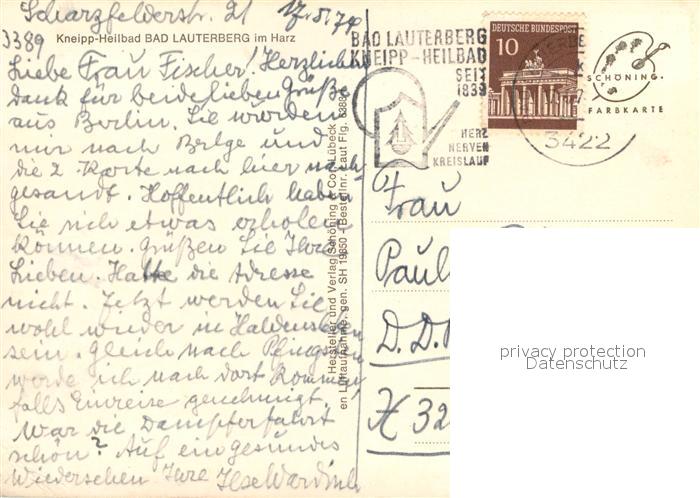 Scharzfelderstr. 21 17.5.74
3389
Kneipp-Heilbad BAD LAUTERBERG im Harz
Liebe Frau Fischer! Herzlich
Dank für beide lieben Grüße
aus Berlin. Sie wurden
mir nach Belge und
die 2. Karte nach hier nach-
gesandt. Hoffentlich haben
Sie sich etwas erholen
können. Grüßen Sie Ihre
Lieben. Hatte die Adresse
nicht. Jetzt werden Sie
wohl wieder in Haldensleben
sein. Gleich nach Pfingsten
werde ich nach dort kommen
falls Einreise genehmigt.
War die Dampferfahrt
schön? Auf ein gesundes
Wiedersehen Ihre Ilse
Hersteller und Verlag Schöning & Co., Lübeck
en Luftaufnahme. gen. SH 19650 - Bestellnr. Laut Flg. 6388
BAD LAUTERBERG
KNEIPP-HEILBAD
SEIT
1839
HERZ
NERVEN
KREISLAUF
DEUTSCHE BUNDESPOST
10
3422
SCHÖNING-
FARBKARTE
Frau
Paul
D.D.
X 32
privacy protection
Datenschutz